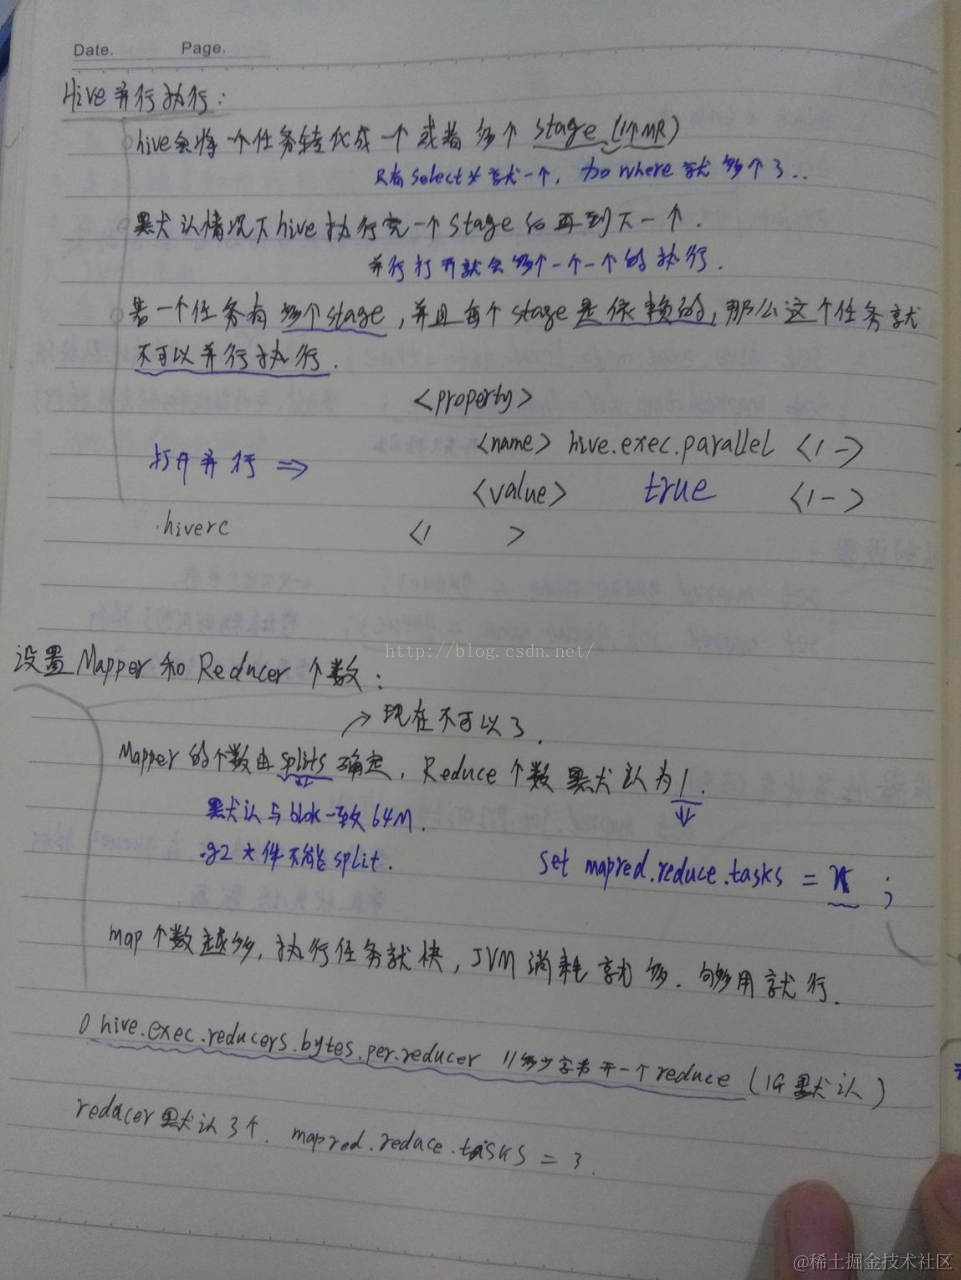 Date. Page.
Hive 并行执行:
hive会将一个任务转化成一个或者多个 stage (1个MR)
只有 select * 就一个, 加 where 就多个了..
默认情况下hive执行完一个stage后再到下一个.
并行打开就会多个一个一个的执行.
若一个任务有多个stage, 并且每个stage是依赖的, 那么这个任务就
不可以并行执行.
<property>
<name> hive.exec.parallel <1->
打开并行 ⇒
<value> true <1->
.hiverc <1 >
http://blog.csdn.net/
设置 Mapper 和 Reducer 个数:
→ 现在不可以了.
Mapper 的个数由 splits 确定, Reduce 个数 默认为 1.
默认与blok一致 64M.
.gz 文件不能split.
set mapred.reduce.tasks = ;
map 个数越多, 执行任务就快, JVM 消耗就多. 够用就行.
hive.exec.reducers.bytes.per.reducer //多少字节开一个reduce (1G 默认)
reducer 默认3个. mapred.reduce.tasks = 3.
@稀土掘金技术社区